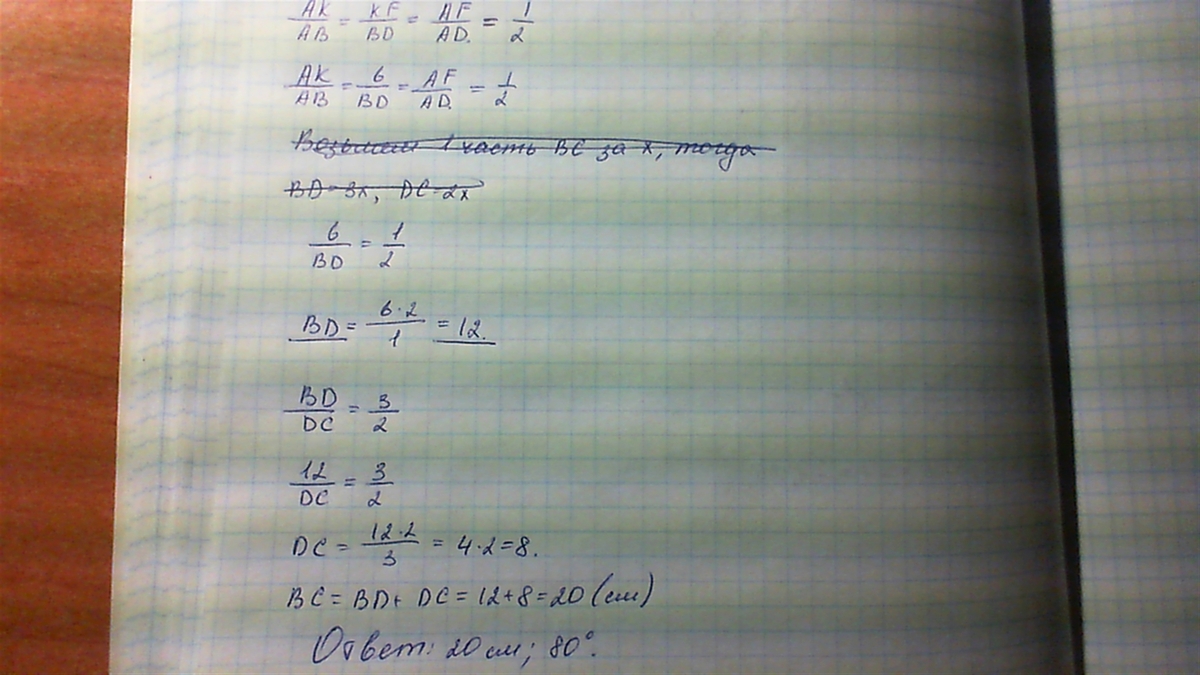 AK/AB = KF/BD = AF/AD. = 1/2
AK/AB = 6/BD = AF/AD. = 1/2
Возьмем 1 часть BC за x, тогда
BD=3x, DC=2x
6/BD = 1/2
BD = 6·2/1 = 12.
BD/DC = 3/2
12/DC = 3/2
DC = 12·2/3 = 4·2=8.
BC = BD+ DC = 12+8=20 (см)
Ответ: 20 см; 80°.